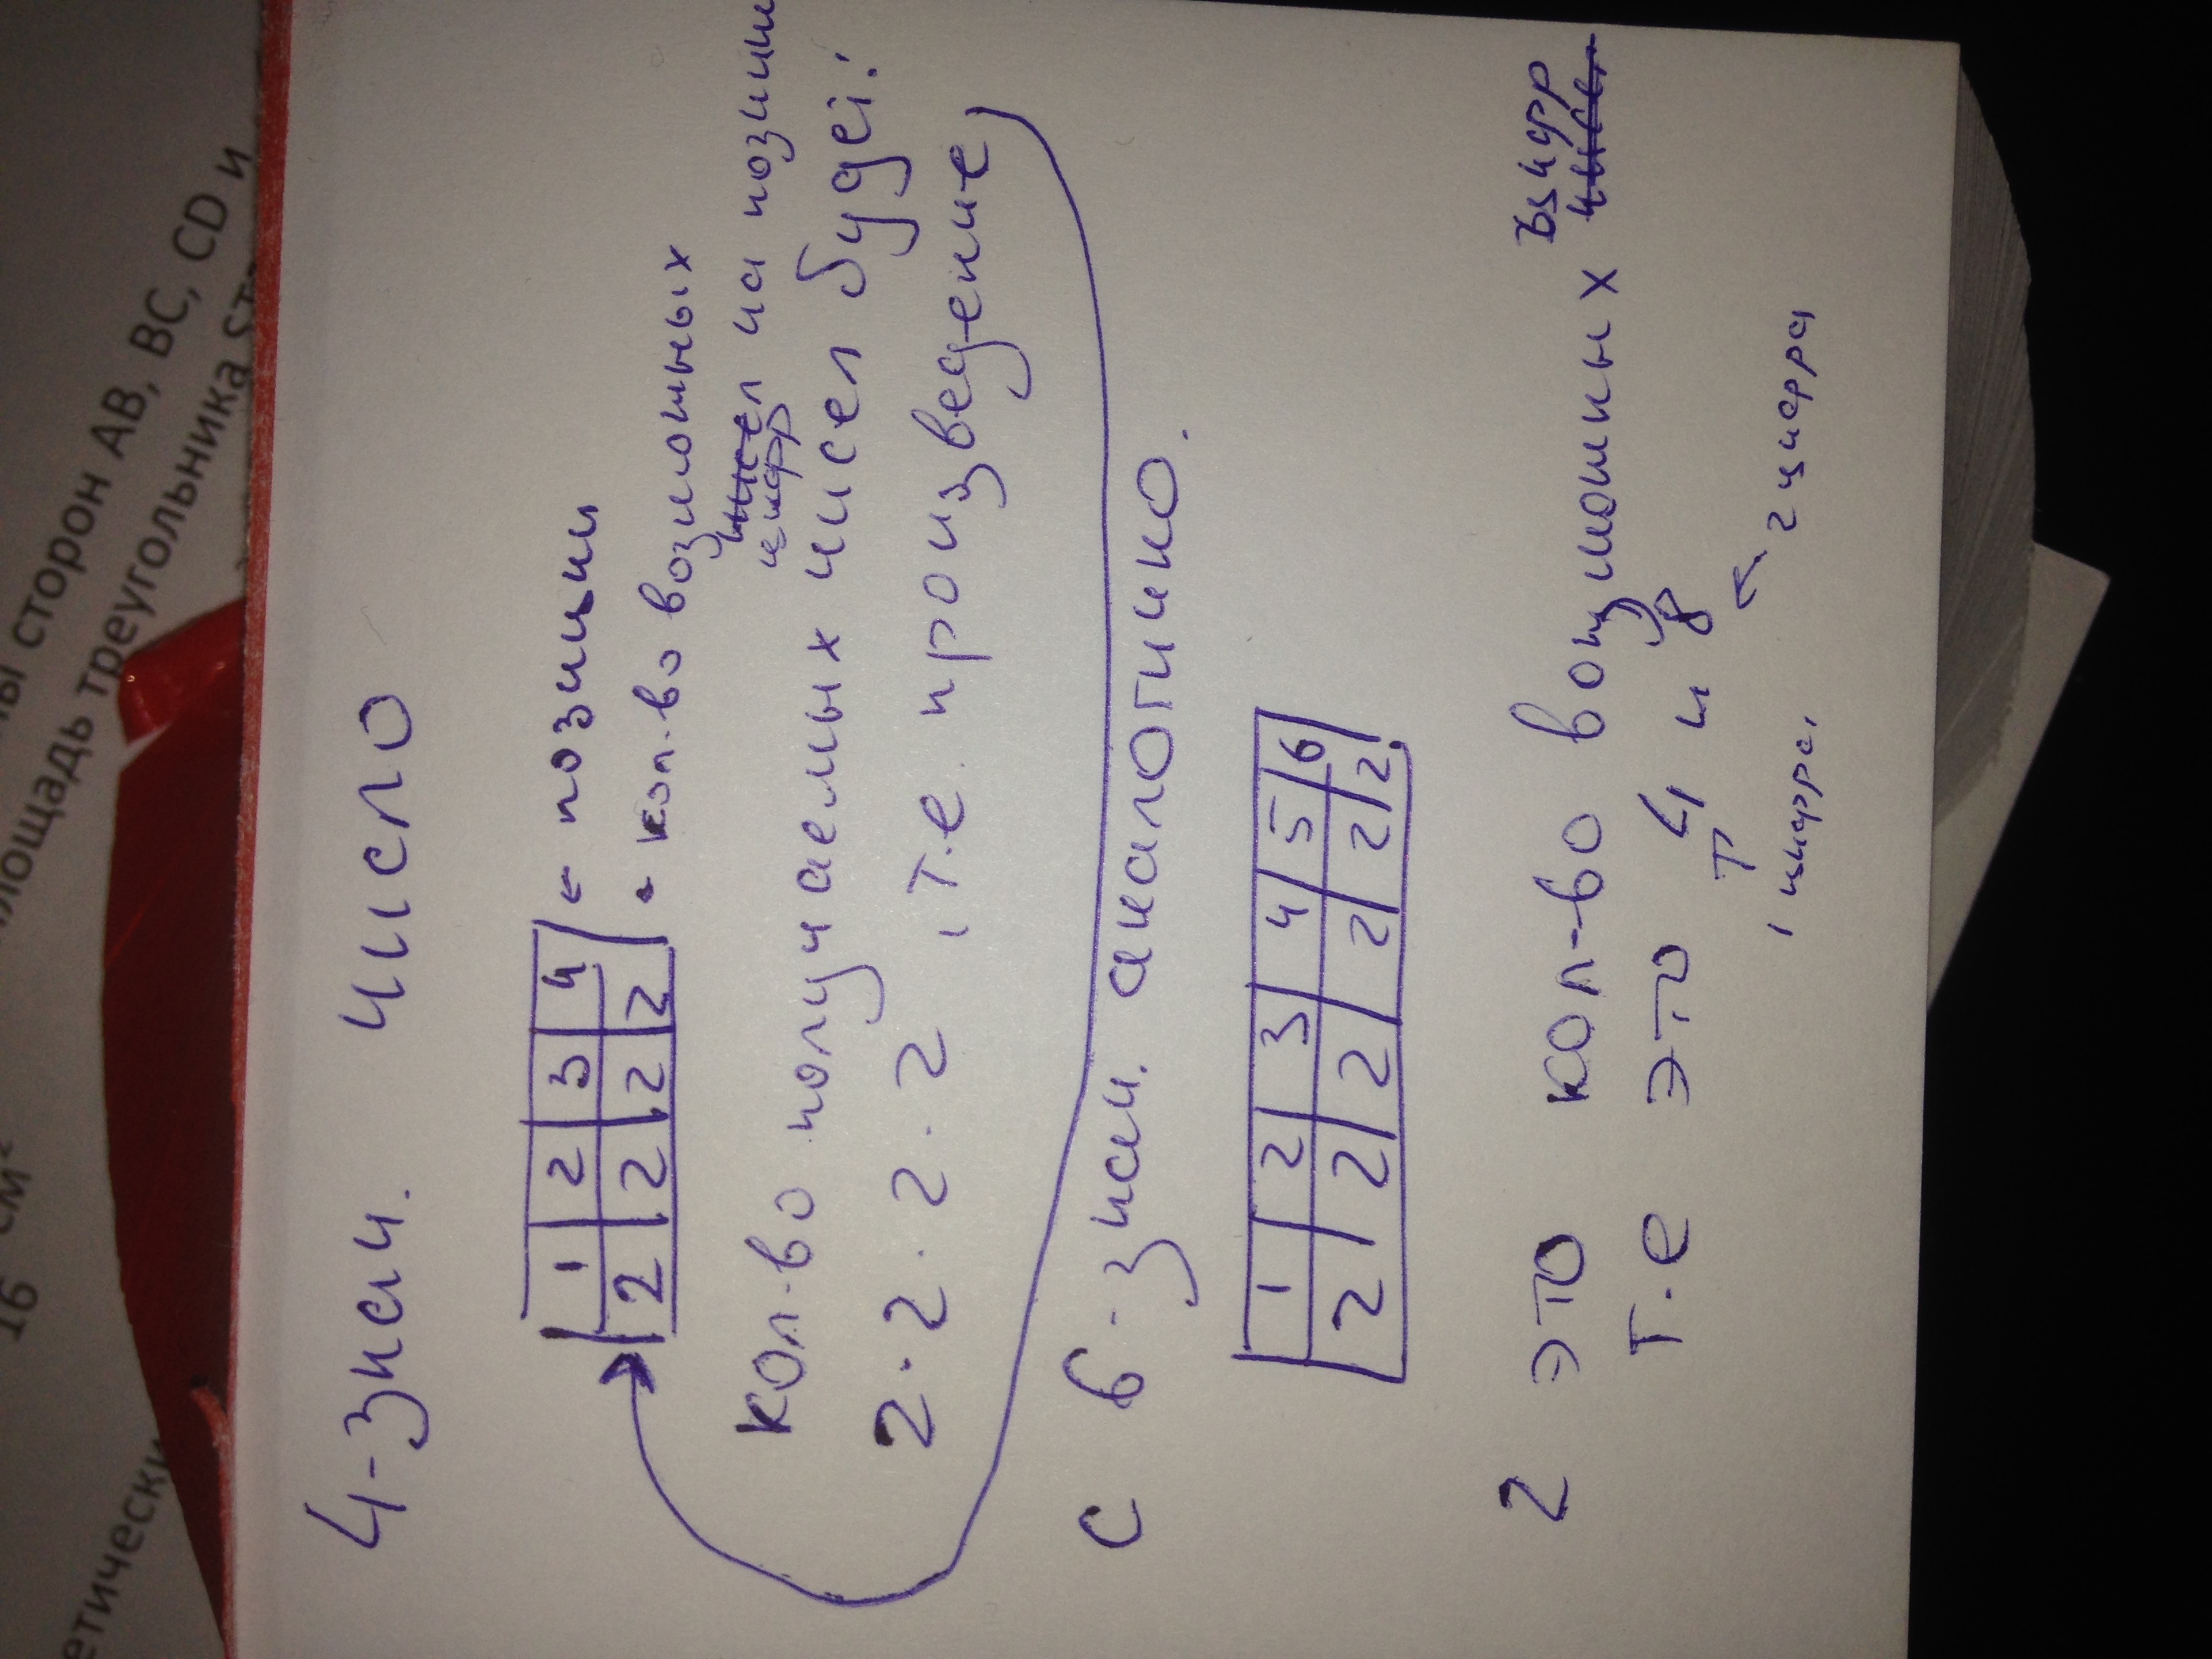 ны сторон AB, BC, CD и
площадь треугольника
16 см²
етически
4-знач. число
1 2 3 4 ← позиции
2 2 2 2 ← кол-во возможных
цифр на позиции
кол-во получаемых чисел будет:
2·2·2·2, т.е. произведение
с 6-знач. аналогично.
1 2 3 4 5 6
2 2 2 2 2 2
цифр
2 это кол-во возможных
т.е это 4 и 8
1 цифра, 2 цифра